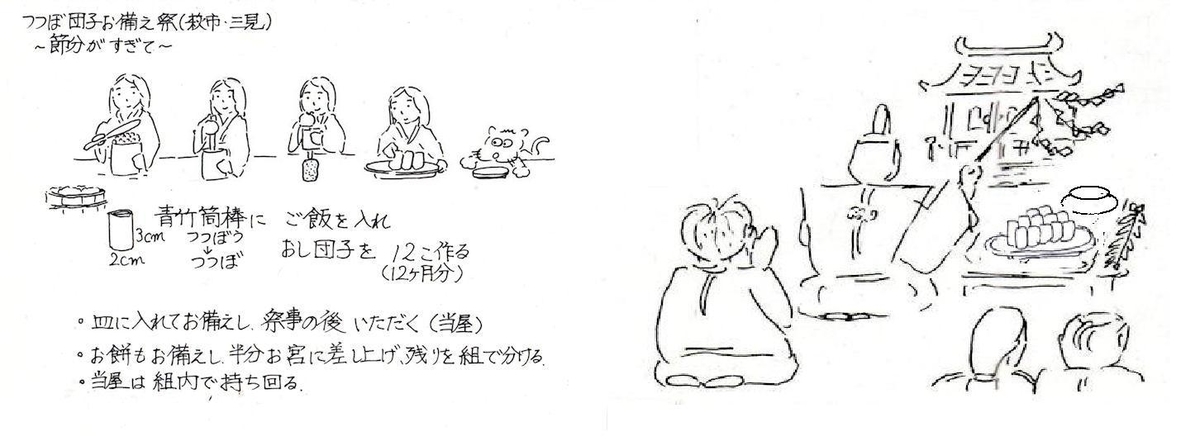 つつぼ団子お備え祭(萩市・三見)
～節分がすぎて～
青竹筒棒に ご飯を入れ
つつぼう
↓
つつぼ
3cm
2cm
おし団子を 12こ作る
(12ヶ月分)
・皿に入れてお備えし、祭事の後 いただく(当屋)
・お餅もお備えし、半分お宮に差し上げ、残りを組で分ける。
・当屋は組内で持ち回る。